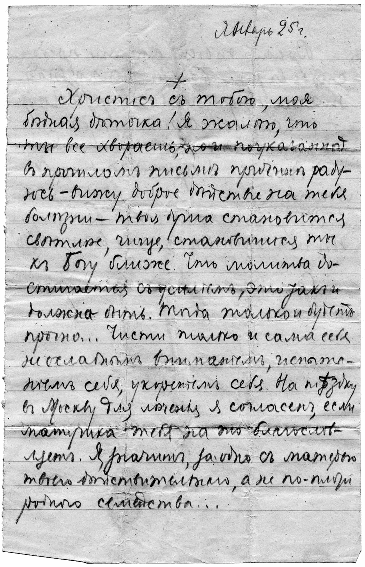 Январь 25 г.
Христос с тобою, моя
бедная деточка! Я жалею, что
ты все хвораешь, но и по указанной
в прошлом письме причине раду-
юсь – вижу доброе действие на тебя
болезни – твоя душа становится
светлее, чище, становишься ты
к Богу ближе. Что молитва до-
стигается с усилием, это так и
должна быть. Тогда только и будет
прочна... Чисти только и сама себя
неослабным вниманием, испыта-
нием себя, укорением себя. На поездку
в Москву для леченья я согласен, если
матушка тебя на то благослов-
ляет. Я, значит, заодно с матерью
твоею действительною, а не по-плоти
родного семейства...